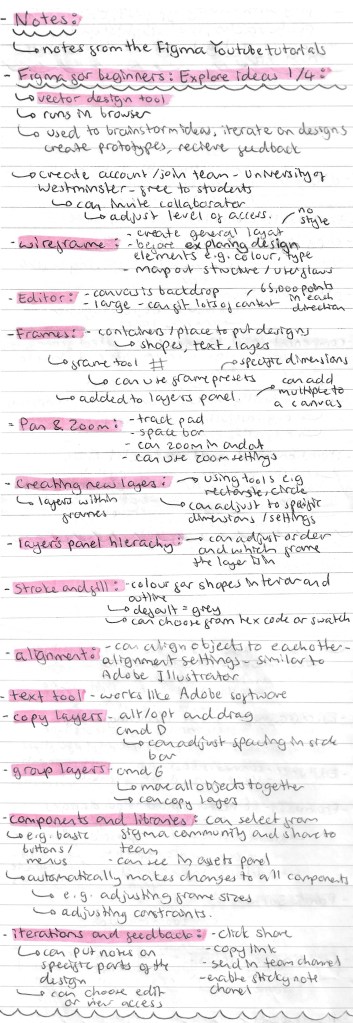 - Notes:
↳ notes from the Figma Youtube tutorials
- Figma for beginners: Explore ideas 1/4:
↳ vector design tool
↳ runs in browser
↳ used to brainstorm ideas, iterate on designs
create prototypes, recieve feedback
↳ create account/join team - University of
Westminster - free to students
↳ can invite collaborator
↳ adjust level of access.
no style
- wireframe: - create general layout
- before exploring design
elements e.g. colour, type
- Map out structure / userflows
- Editor: - canvas is backdrop
- large - can fit lots of content
65,000 points
in each
direction
- Frames: - containers / place to put designs
↳ shapes, text, layers
↳ frame tool #
specific dimensions
↳ can use frame presets
↳ added to layers panel.
can add
multiple to
a canvas
- Pan & Zoom: - track pad
- space bar
- can zoom in and out
- can use zoom settings
- Creating new layers: → using tools e.g
rectangle, circle
↳ layers within
frames
↳ can adjust to specific
dimensions / settings
- layers panel hierachy: → can adjust order
and which frame
the layer is in
- Stroke and fill: - colour for shapes interior and
outline
↳ default = grey
↳ can choose from hex code or swatch
- alignment: - can align objects to each other -
alignment settings - similar to
Adobe Illustrator
- text tool - works like Adobe software
- copy layers - alt/opt and drag
cmd D
↳ can adjust spacing in side
bar
- group layers - cmd G
↳ move all objects together
↳ can copy layers
- components and libraries: can select from
figma community and share to
team
↳ e.g. basic
buttons /
menus
- can see in assets panel
↳ automatically makes changes to all components
↳ e.g. adjusting frame sizes
↳ adjusting constraints.
- iterations and feedback: - click share
- copy link
- send in team channel
- enable sticky note
chanel
↳ can put notes on
specific parts of the
design
↳ can choose edit
or view access